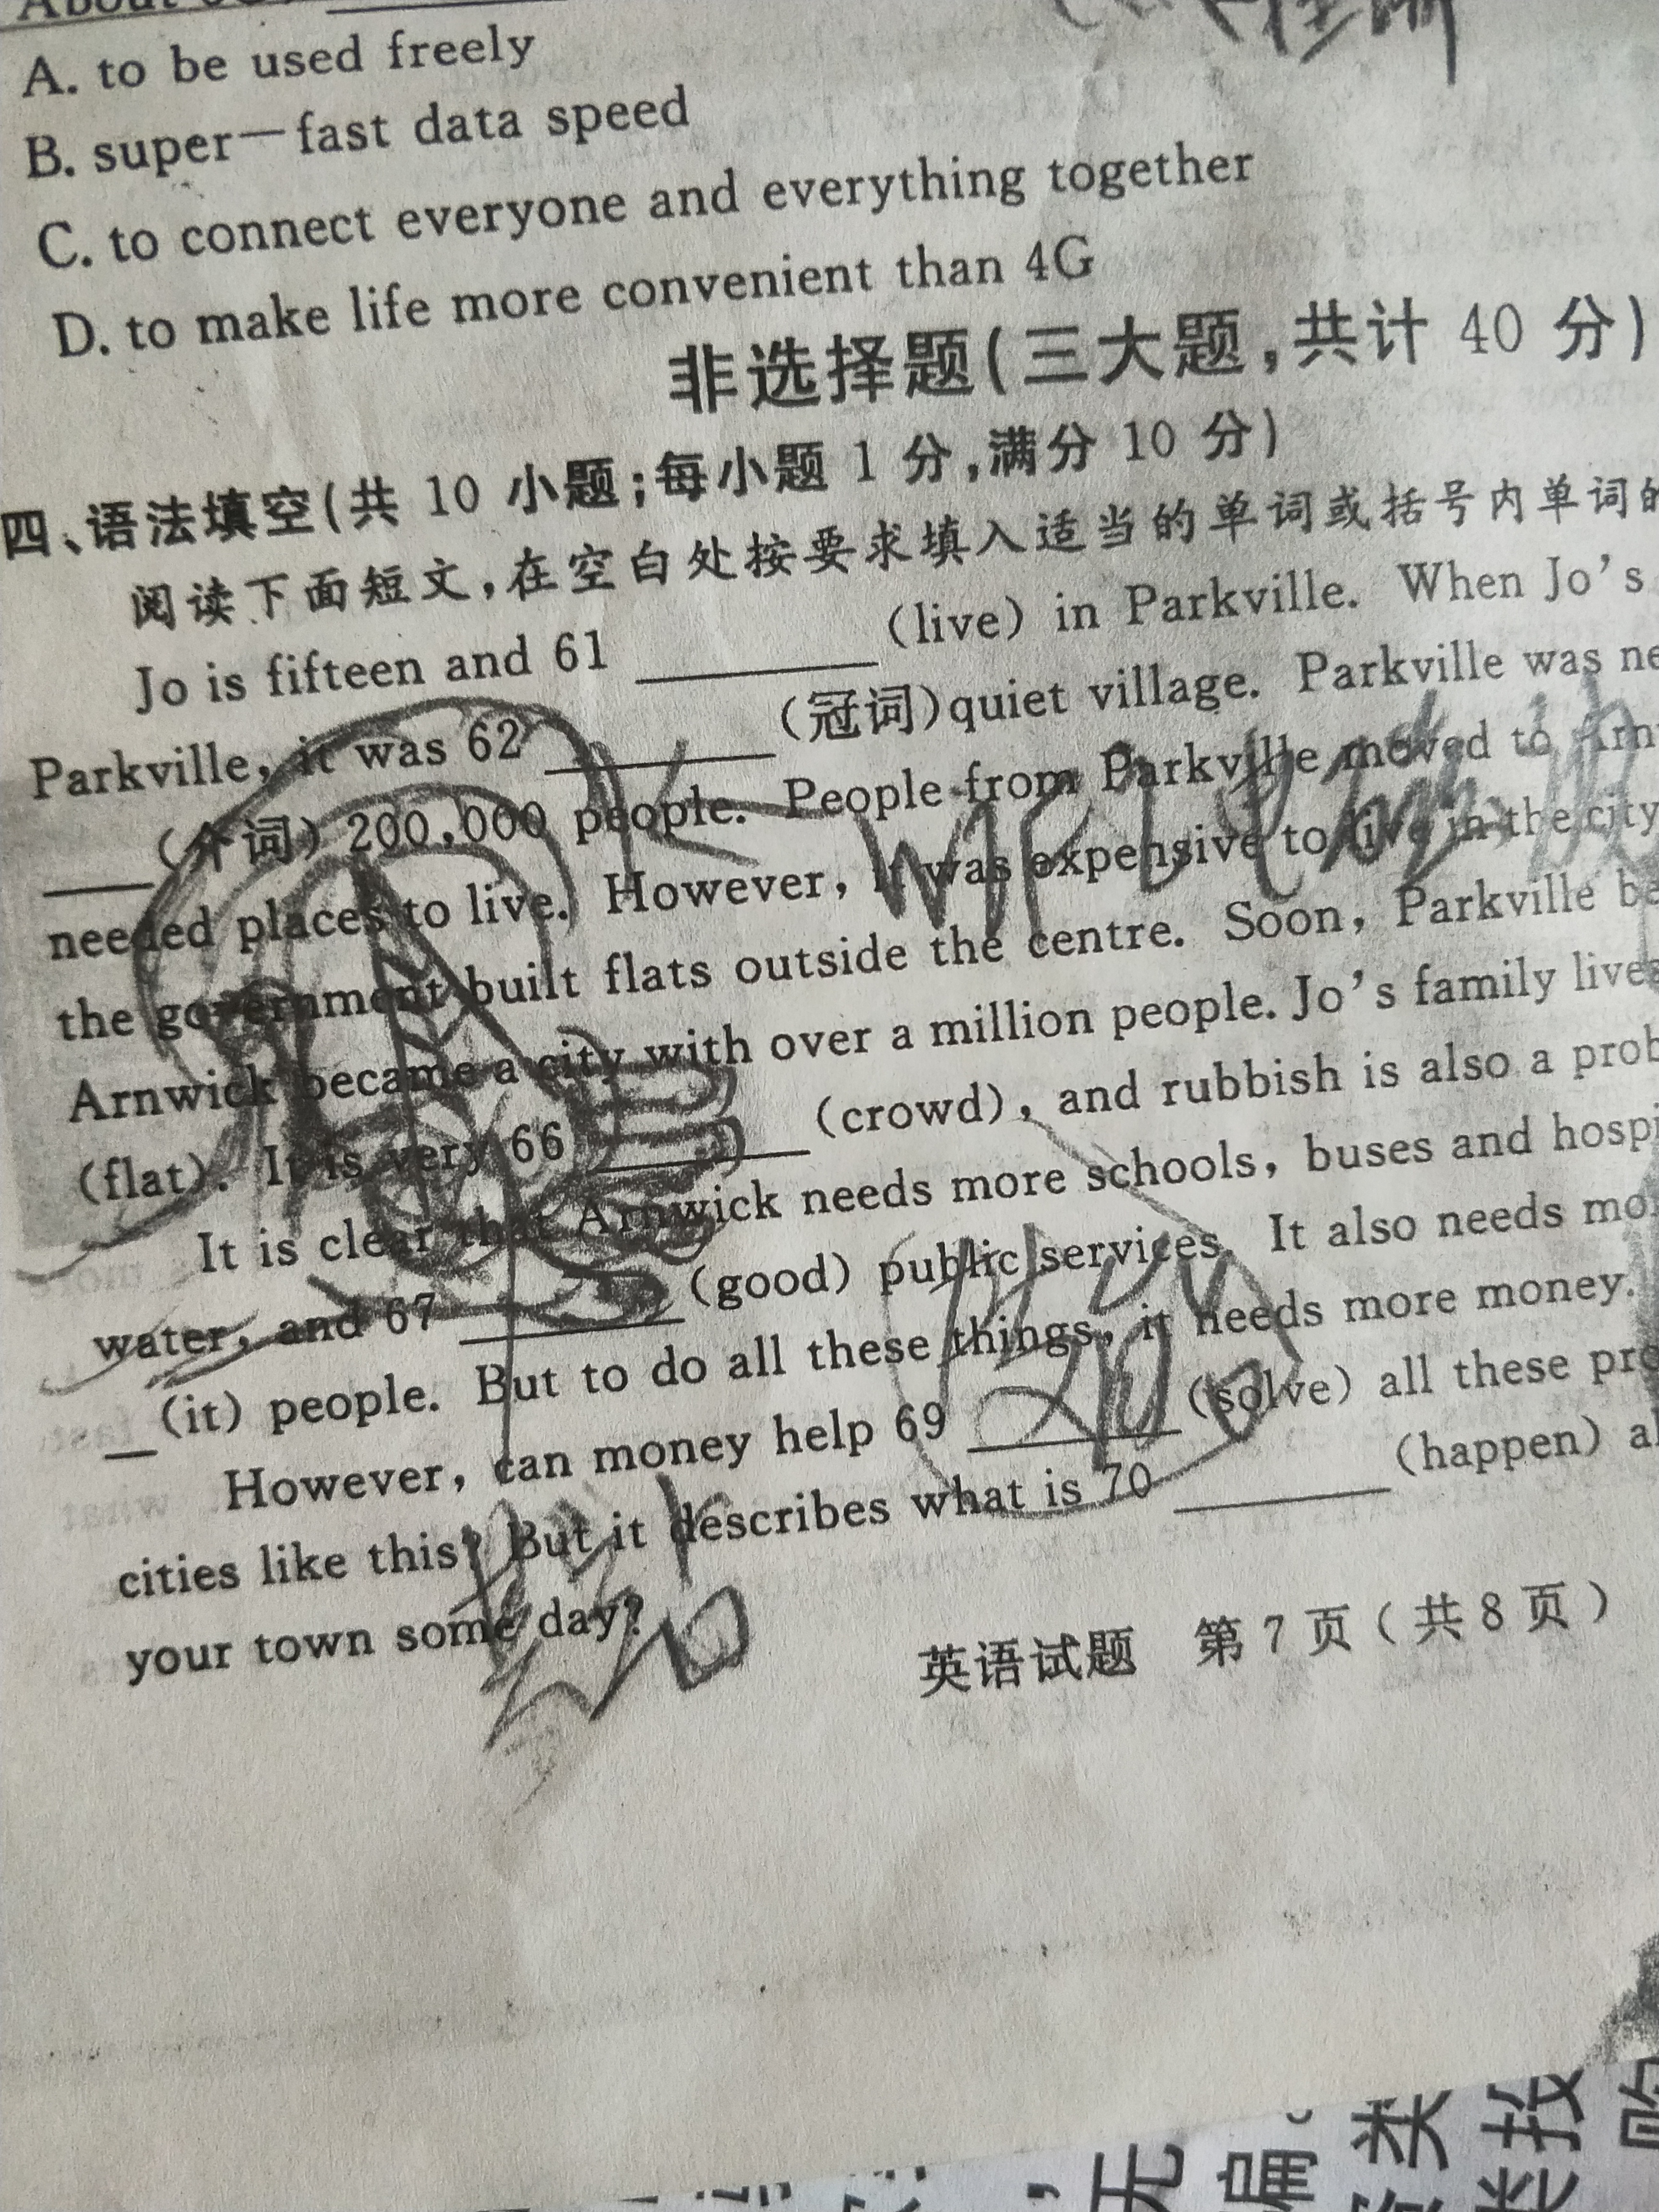 A. to be used freely
B. super—fast data speed
C. to connect everyone and everything together
D. to make life more convenient than 4G
非选择题(三大题,共计 40 分)
四、语法填空(共 10 小题;每小题 1 分,满分 10 分)
阅读下面短文,在空白处按要求填入适当的单词或括号内单词的
Jo is fifteen and 61 ______ (live) in Parkville. When Jo's
Parkville, it was 62 ______ (冠词)quiet village. Parkville was
___(介词) 200,000 people. People from Parkville moved to
needed places to live. However, it was expensive to live in the city
the government built flats outside the centre. Soon, Parkville
Arnwick became a city with over a million people. Jo's family lives
(flat). It is very 66 ______ (crowd), and rubbish is also a
It is clear that Arnwick needs more schools, buses and
water, and 67 ______ (good) public services. It also needs
_(it) people. But to do all these things, it needs more money.
However, can money help 69 ______ (solve) all these
cities like this? But it describes what is 70 ______ (happen)
your town some day?
英语试题 第 7 页 ( 共 8 页 )